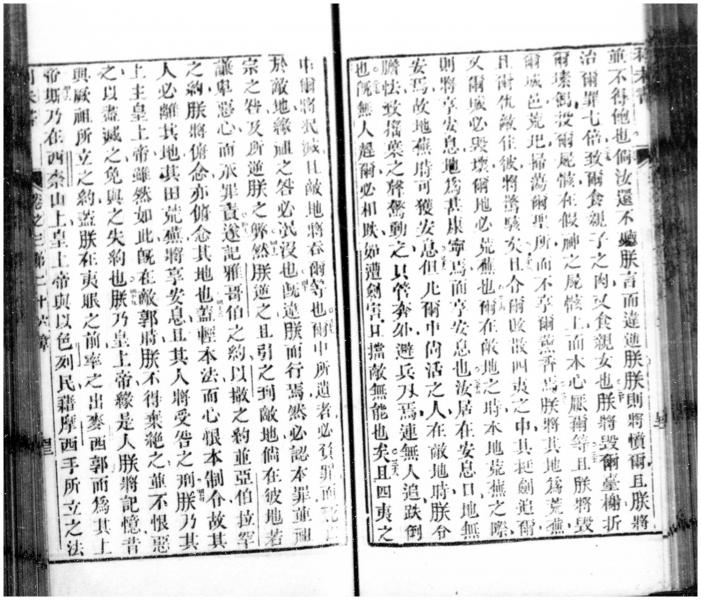 並不得飽也倘汝還不聽朕言而違逆朕朕則將憤爾且朕將
治爾罪七倍致爾食親子之肉又食親女也朕將毀爾臺榭折
爾 偶投爾屍骸在假神之屍骸上而本心厭爾等且朕將毀
爾城邑荒圮掃蕩爾聖所而不享爾薰香焉朕將其地爲荒蕪
且爾仇敵住彼將駭異矣且令爾敗散四夷之中其拔劍追爾
又爾城必毀壞爾地必荒蕪也爾在敵地之時本地荒蕪之際
則將享安息地爲其康寧焉而享安息也汝居在安息日地無
安焉故地蕪時可獲安息但凡爾中尚活之人在敵地時朕令
膽怯致搖葉之聲驚動之只管奔如避兵刃焉連無人追跌倒
也既無人趕爾必相跌如遭劍害且擋敵無能也矣且四夷之
中爾將死滅且敵地將吞爾等也爾中所遺者必 罪而
於敵地緣祖之咎必泯沒也旣違朕而行焉然必認本罪並祖
宗之咎及所逆朕之弊然朕逆之且引之到敵地倘在彼地若
謙卑惡心而承罪責遂記雅哥伯之約以撒之約並亞伯拉罕
之約朕將俯念亦俯念其地也蓋輕本法而心恨本制令故其
人必離其地其田荒蕪將享安息且其人將受咎之刑朕乃其
上主皇上帝雖然如此既在敵郭時朕不得棄絕之並不恨惡
之以盡滅之免與之失約也朕乃皇上帝緣是人朕將記憶昔
與厥祖所立之約蓋朕在夷眼之前率之出麥西郭而爲其上
帝斯乃在西奈山上皇上帝與以色列民藉摩西手所立之法
卷之三第二十六章